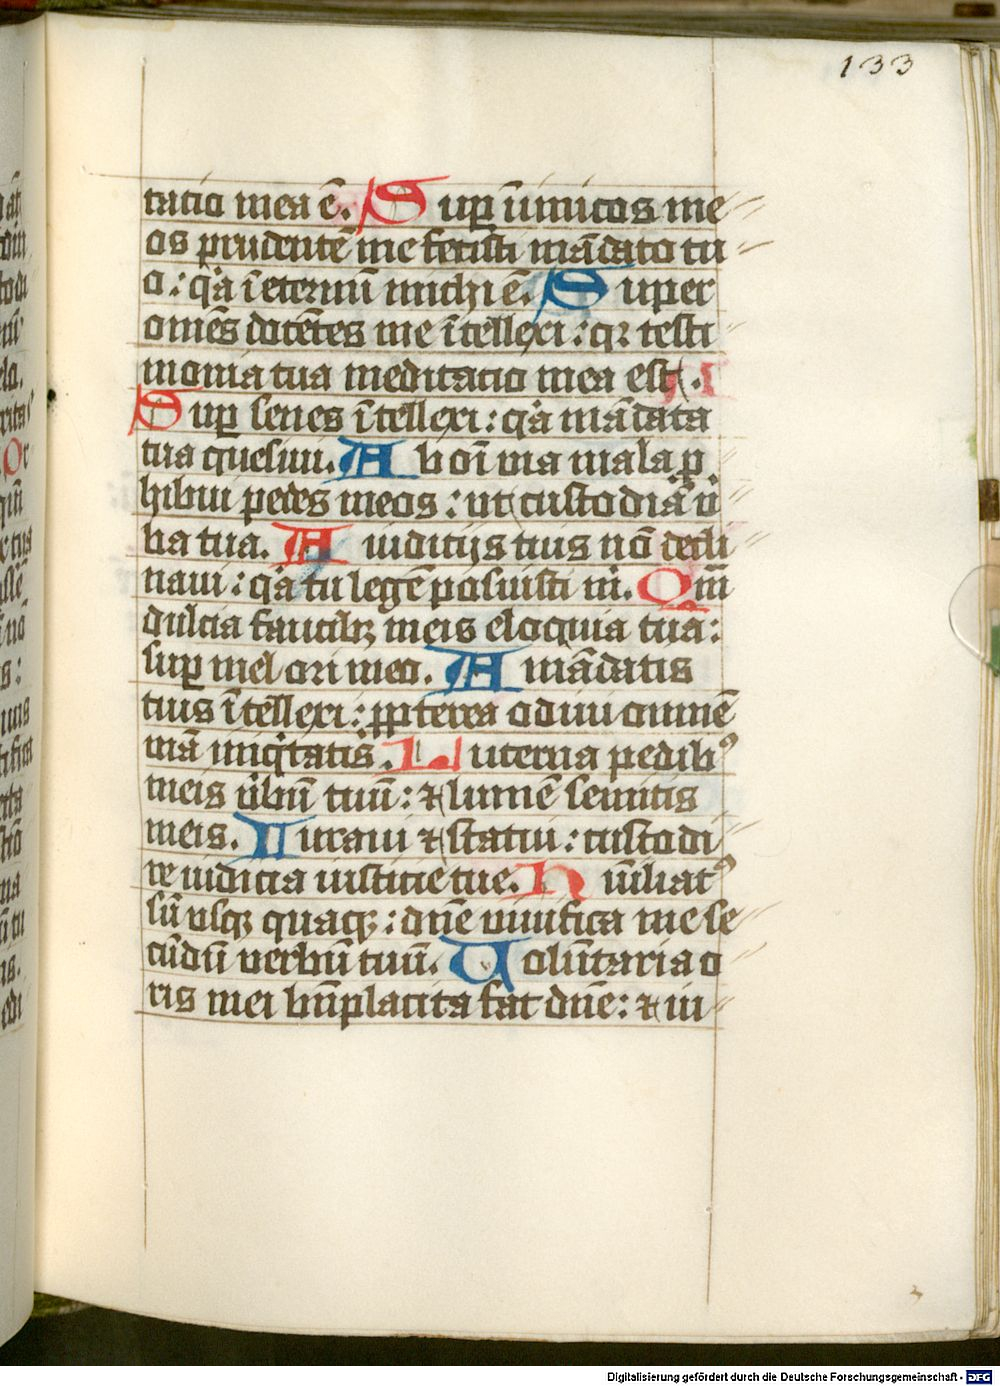 133
tacio mea ē. Sup̄ īimicos me
os prudentē me fecisti mādato tu
o: q'a ī eternū michi ē. Super
omēs docētes me ītellexi: qꝛ testi
monia tua meditacio mea est.
Sup̄ senes ītellexi: q'a mādata
tua quesiui. Ab oī uia mala ꝓ
hibui pedes meos: ut custodiā ū
ba tua. A iudicijs tuis nō decli
naui: q'a tu legē posuisti m̄. Qm̄
dulcia faucibꝫ meis eloquia tua:
sup̄ mel ori meo. A mādatis
tuis ītellexi: ꝓpterea odiui omnē
uiā iniq'tatis. Lucerna pedib9
meis ūbū tuū: ⁊ lumē semitis
meis. Iuraui ⁊ statui: custodi
re iudicia iusticie tue. Humiliat9
sū usqꝫ quaqꝫ: dn̄e uiuifica me se
cūdū uerbū tuū. Uolūtaria o
ris mei bn̄placita fac dn̄e: ⁊ iu
Digitalisierung gefördert durch die Deutsche Forschungsgemeinschaft - DFG